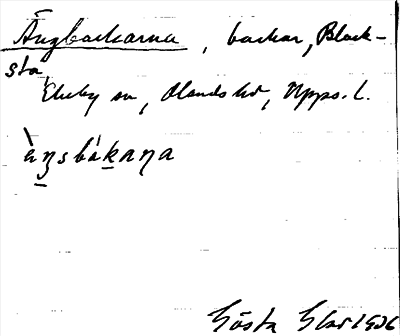 Ängbackarna, backar, Black-
sta,
Ekeby sn, Olands hd, Upps. l.
ὰŋsbákaŋa
Gösta